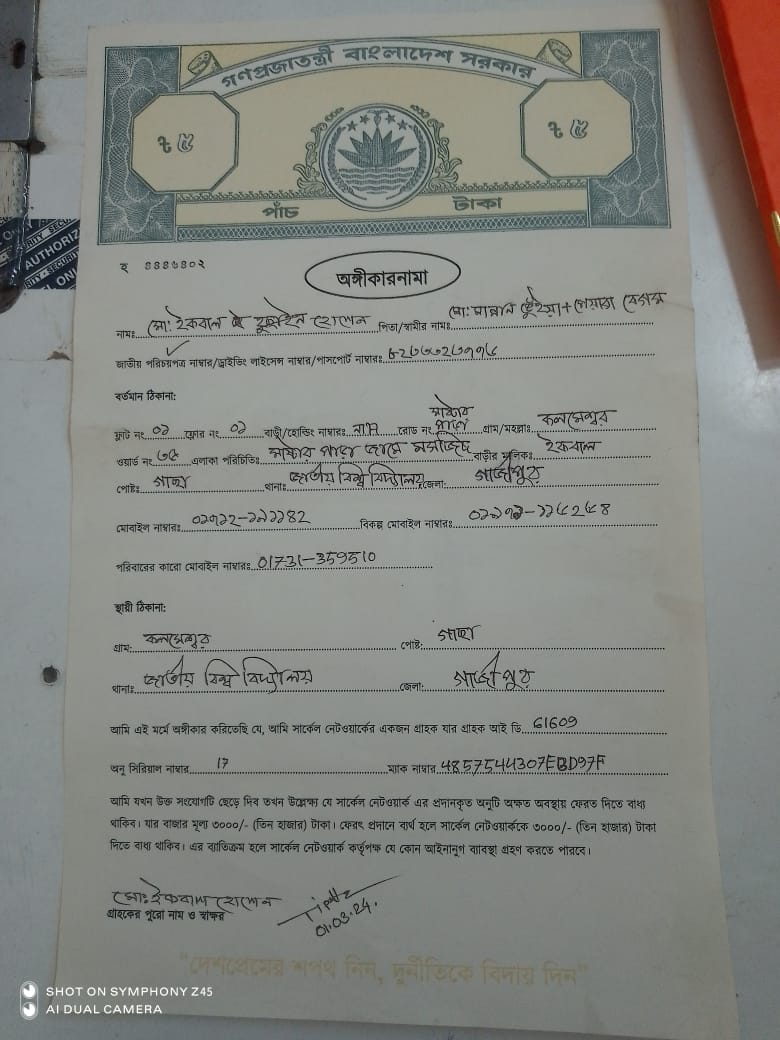 গণপ্রজাতন্ত্রী বাংলাদেশ সরকার
৳ ৫ ৳ ৫
পাঁচ টাকা
অঙ্গীকারনামা
নামঃ মো: ইকবাল হোসেন পিতা/স্বামীর নামঃ মো: মান্নান ভূঁইয়া + পেয়ারা বেগম
জাতীয় পরিচয়পত্র নাম্বার/ড্রাইভিং লাইসেন্স নাম্বার/পাসপোর্ট নাম্বারঃ
বর্তমান ঠিকানা:
ফ্লাট নং ০১ ফ্লোর নং ০১ বাড়ী/হোল্ডিং নাম্বারঃ রোড নং গ্রাম/মহল্লাঃ কলমেশ্বর
ওয়ার্ড নং ৩৫ এলাকা পরিচিতিঃ মাষ্টার পাড়া জামে মসজিদ বাড়ীর মালিকঃ ইকবাল
পোষ্টঃ গাছা থানাঃ জাতীয় বিশ্ববিদ্যালয় জেলা: গাজীপুর
মোবাইল নাম্বারঃ বিকল্প মোবাইল নাম্বারঃ
পরিবারের কারো মোবাইল নাম্বারঃ 01731-359510
স্থায়ী ঠিকানা:
গ্রাম: কলমেশ্বর পোষ্ট: গাছা
থানাঃ জাতীয় বিশ্ববিদ্যালয় জেলা: গাজীপুর
আমি এই মর্মে অঙ্গীকার করিতেছি যে, আমি সার্কেল নেটওয়ার্কের একজন গ্রাহক যার গ্রাহক আই ডি. 61609
অনু সিরিয়াল নাম্বার 17 ম্যাক নাম্বার 4857544307EBD97F
আমি যখন উক্ত সংযোগটি ছেড়ে দিব তখন উল্লেক্ষ্য যে সার্কেল নেটওয়ার্ক এর প্রদানকৃত অনুটি অক্ষত অবস্থায় ফেরত দিতে বাধ্য
থাকিব। যার বাজার মূল্য ৩০০০/- (তিন হাজার) টাকা। ফেরৎ প্রদানে ব্যর্থ হলে সার্কেল নেটওয়ার্ককে ৩০০০/- (তিন হাজার) টাকা
দিতে বাধ্য থাকিব। এর ব্যতিক্রম হলে সার্কেল নেটওয়ার্ক কর্তৃপক্ষ যে কোন আইনানুগ ব্যাবস্থা গ্রহণ করতে পারবে।
মো: ইকবাল হোসেন
গ্রাহকের পুরো নাম ও স্বাক্ষর
01.03.24.
"দেশপ্রেমের শপথ নিন, দুর্নীতিকে বিদায় দিন"
SHOT ON SYMPHONY Z45
AI DUAL CAMERA